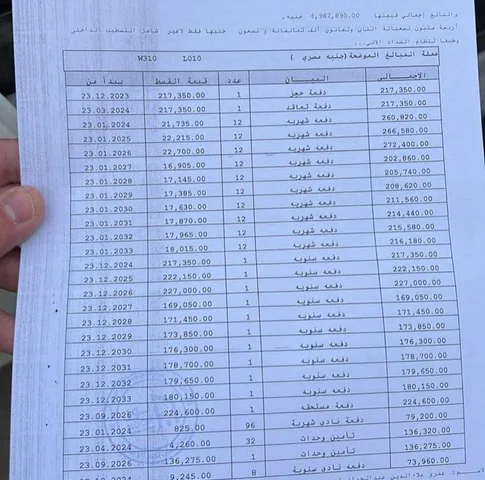 والبالغ إجمالي قيمتها 4,982,890.00 جنيه,
W310 L010
عملة المبالغ الموضحة (جنيه مصري )
الإجمالي البيـــــان عدد قيمة القسط يبتدأ من
217,350.00 دفعة حجز 1 217,350.00 23.12.2023
217,350.00 دفعة تعاقد 1 217,350.00 23.03.2024
260,820.00 دفعه شهريه 12 21,735.00 23.01.2024
266,580.00 دفعه شهريه 12 22,215.00 23.01.2025
272,400.00 دفعه شهريه 12 22,700.00 23.01.2026
202,860.00 دفعه شهريه 12 16,905.00 23.01.2027
205,740.00 دفعه شهريه 12 17,145.00 23.01.2028
208,620.00 دفعه شهريه 12 17,385.00 23.01.2029
211,560.00 دفعه شهريه 12 17,630.00 23.01.2030
214,440.00 دفعه شهريه 12 17,870.00 23.01.2031
215,580.00 دفعه شهريه 12 17,965.00 23.01.2032
216,180.00 دفعه شهريه 12 18,015.00 23.01.2033
217,350.00 دفعه سنويه 1 217,350.00 23.12.2024
222,150.00 دفعه سنويه 1 222,150.00 23.12.2025
227,000.00 دفعه سنويه 1 227,000.00 23.12.2026
169,050.00 دفعه سنويه 1 169,050.00 23.12.2027
171,450.00 دفعه سنويه 1 171,450.00 23.12.2028
173,850.00 دفعه سنويه 1 173,850.00 23.12.2029
176,300.00 دفعه سنويه 1 176,300.00 23.12.2030
178,700.00 دفعه سنويه 1 178,700.00 23.12.2031
179,650.00 دفعه سنويه 1 179,650.00 23.12.2032
180,150.00 دفعه سنويه 1 180,150.00 23.12.2033
224,600.00 دفعة مستحقه 1 224,600.00 23.09.2026
79,200.00 دفعة نادي شهرية 96 825.00 23.01.2024
136,320.00 تأمين وحدات 32 4,260.00 23.04.2024
136,275.00 تأمين وحدات 1 136,275.00 23.09.2026
73,960.00 دفعه نادي سنوية 8 9,245.00